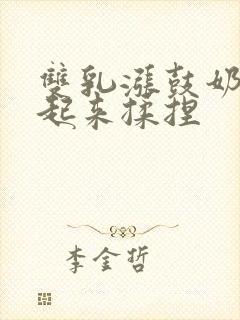 雙乳漲鼓奶
起来揉捏
李金哲